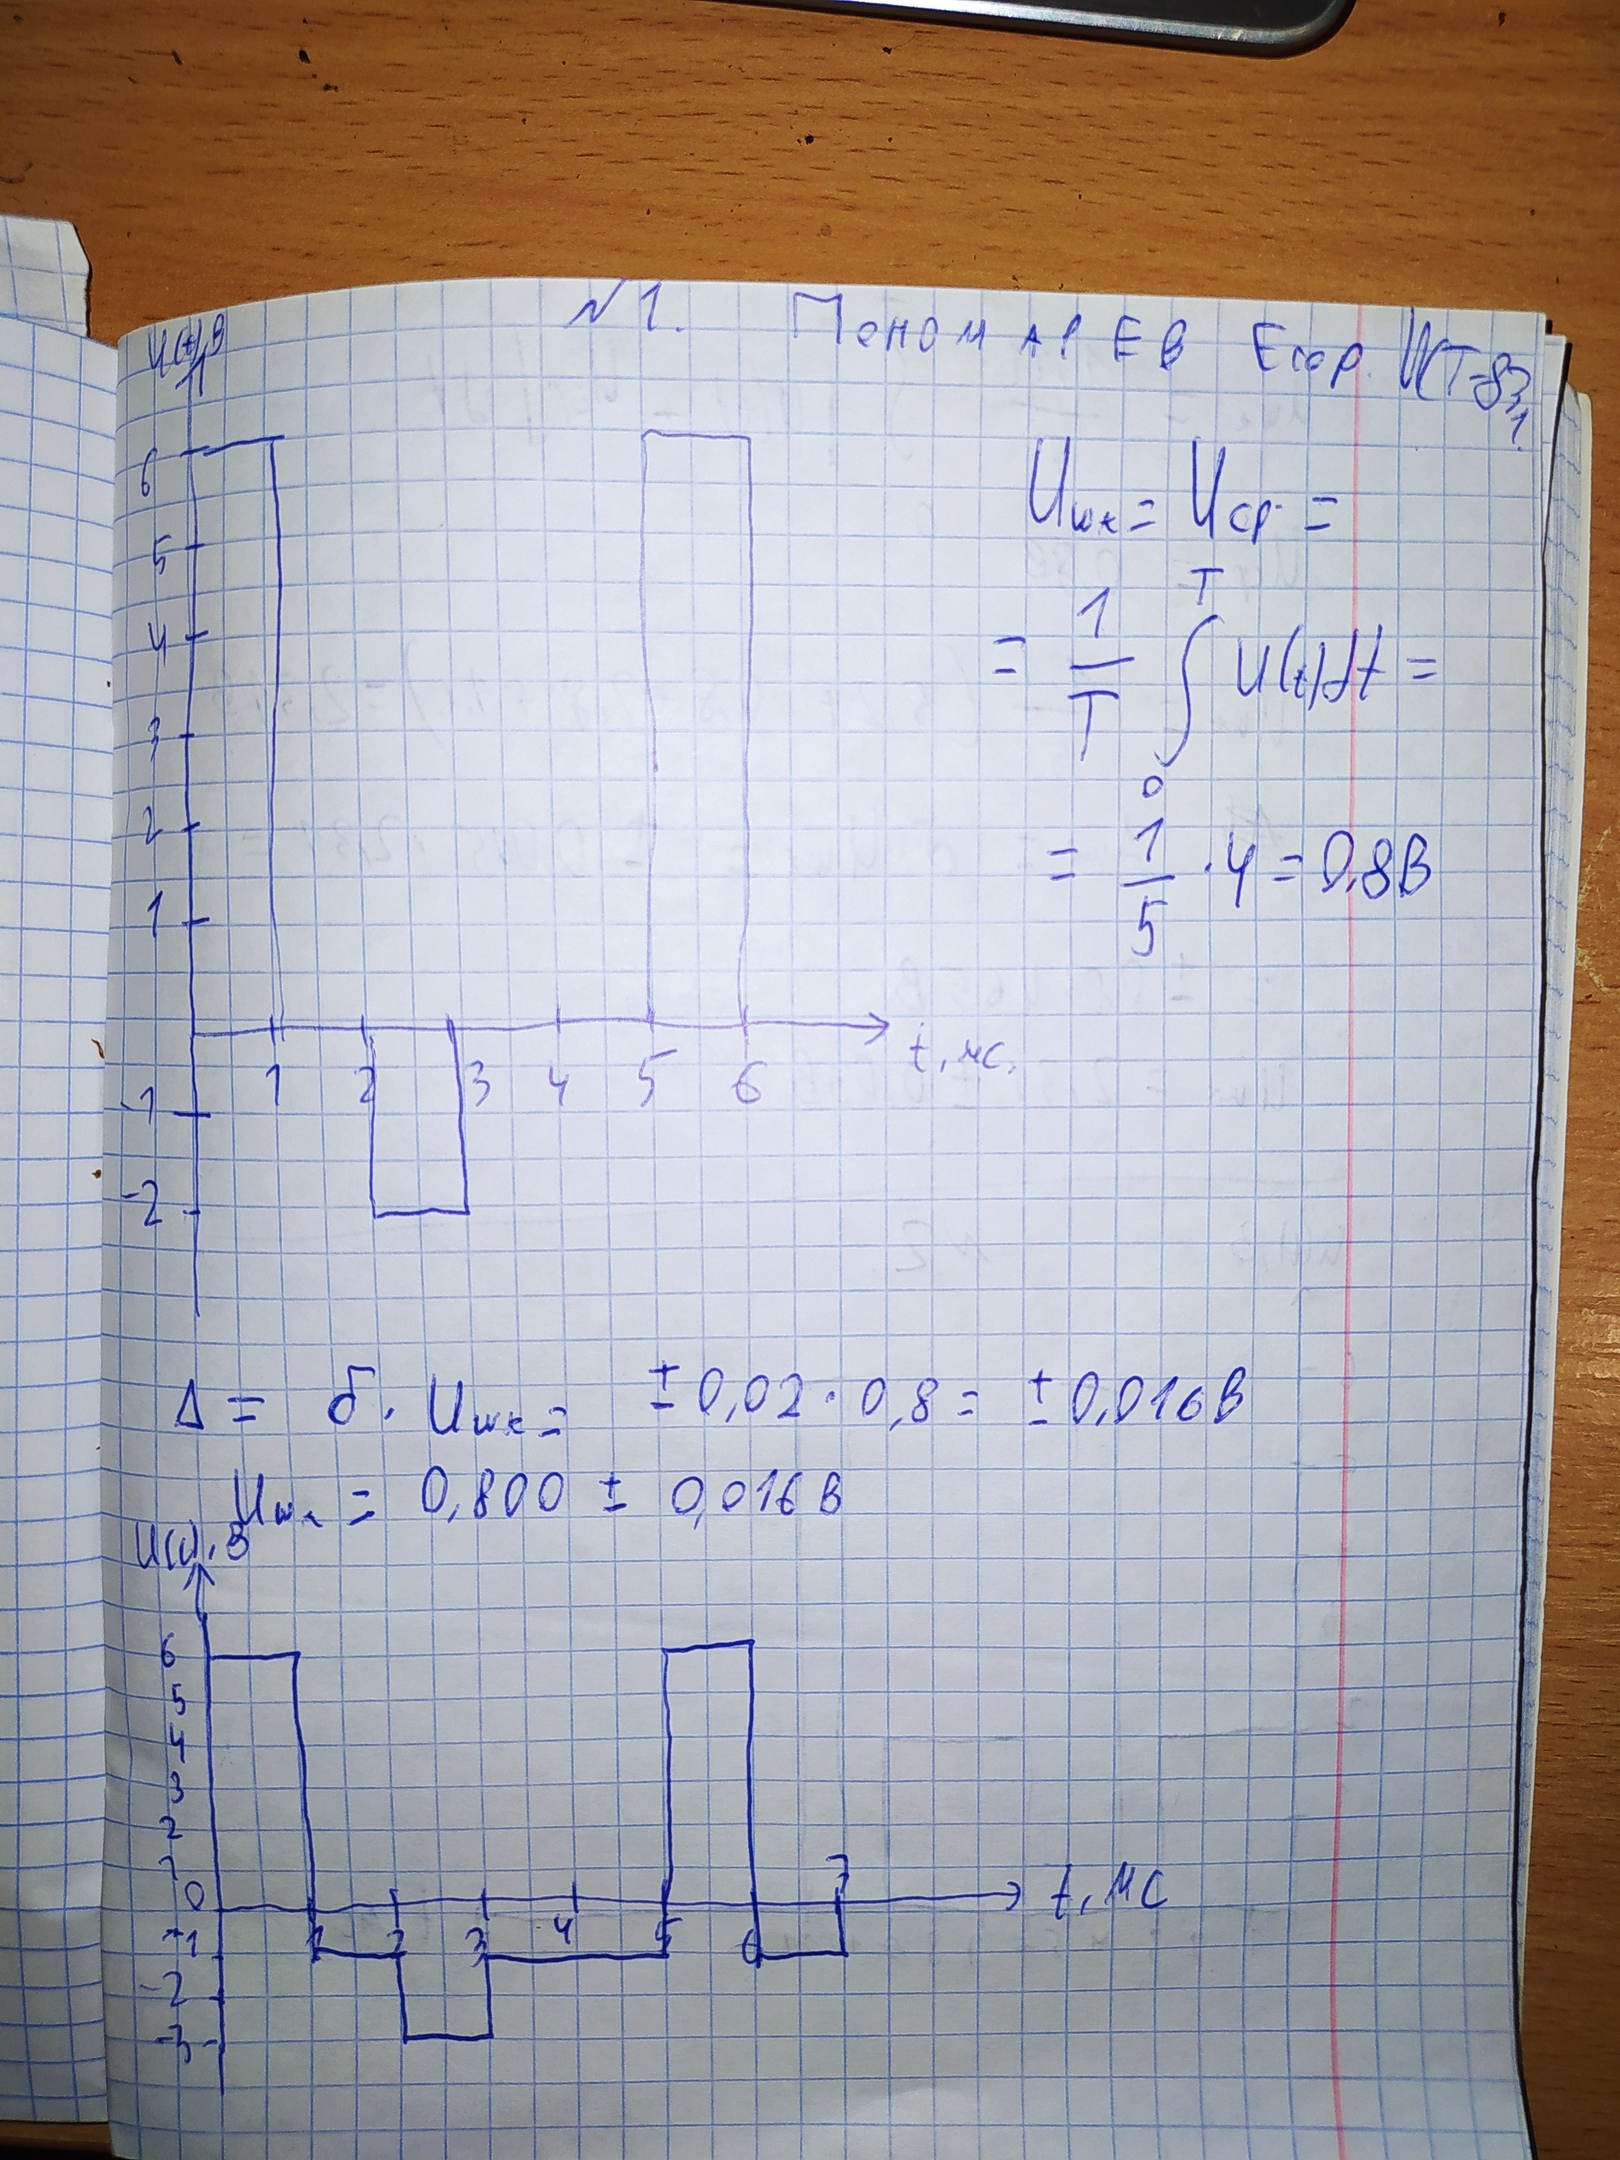 №1. Пономарев Егор. ИКТ-83,
1
U(t), В
6
5
4
3
2
1
-1
-2
1 2 3 4 5 6
t, мс.
Uшк = Uср =
= 1/T ∫₀ᵀ U(t)dt =
= 1/5 · 4 = 0,8В
Δ = δ · Uшк = ± 0,02 · 0,8 = ± 0,016В
Uшк = 0,800 ± 0,016 В
U(t), В
6
5
4
3
2
1
0
-1
-2
-3
1 2 3 4 5 6 7
t, мс